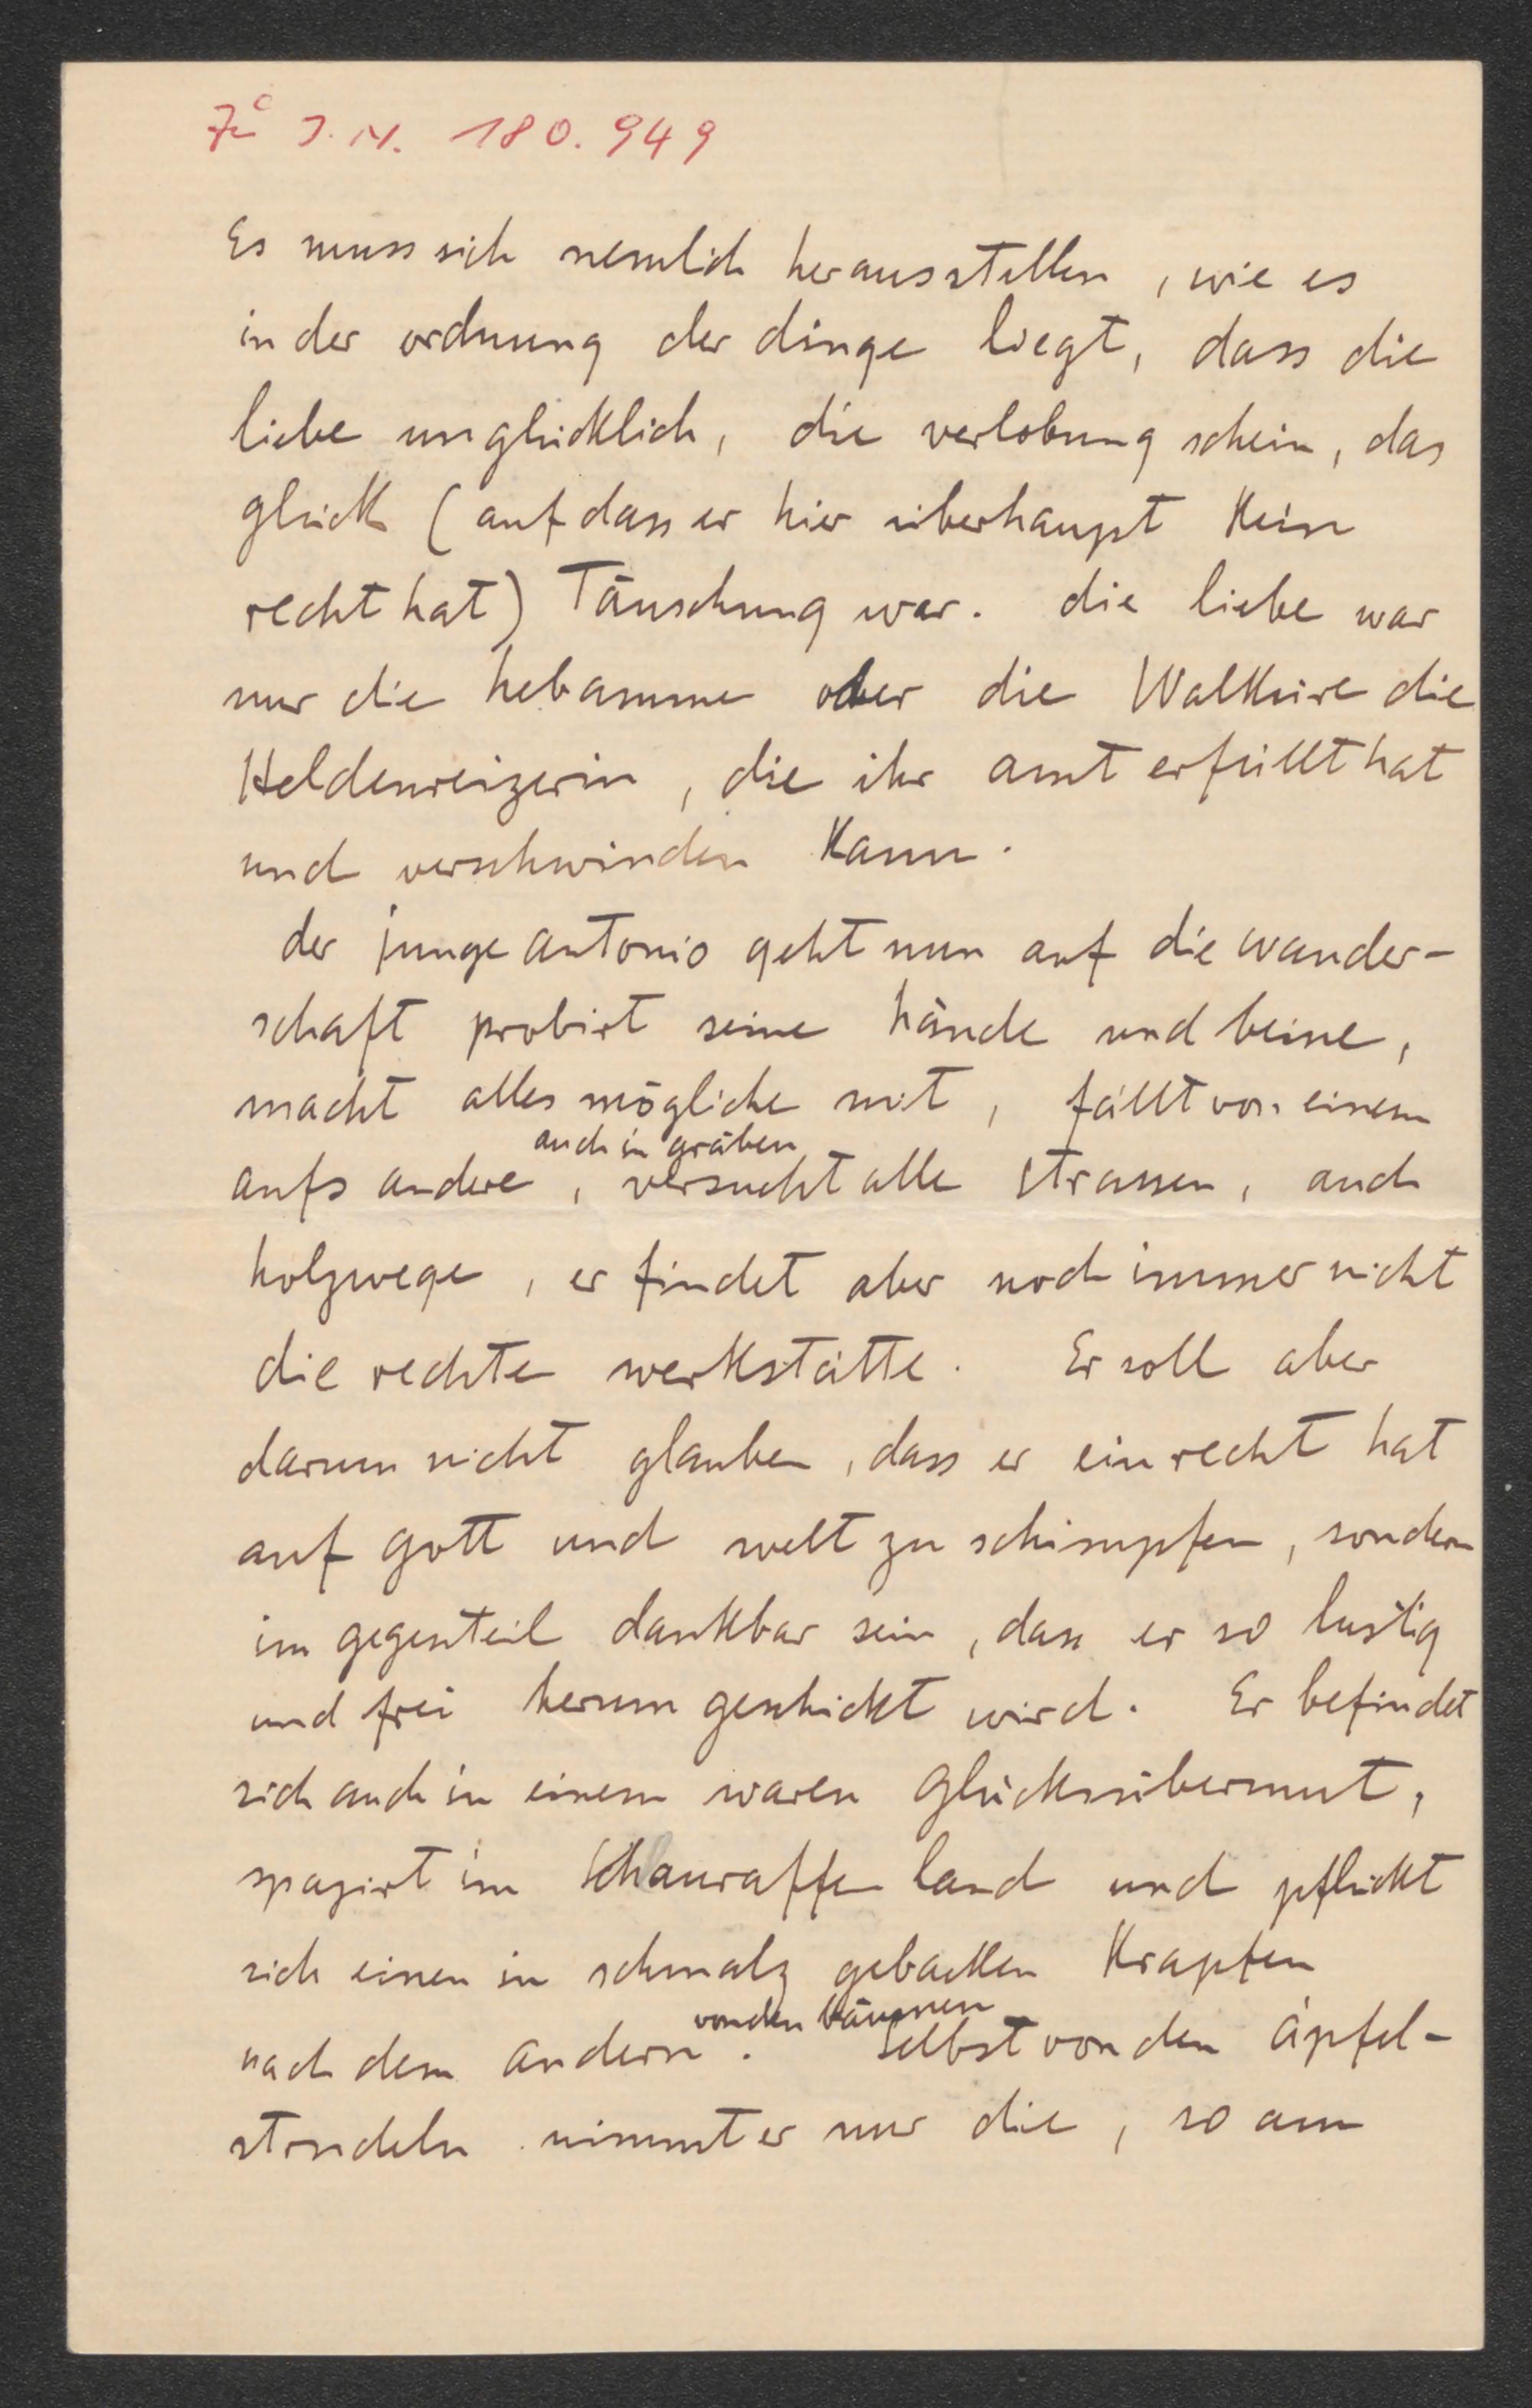 Zu I.N. 180.949
Es muss sich nemlich herausstellen, wie es
in der ordnung der dinge liegt, dass die
liebe unglücklich, die verlobung schein, das
glück (auf dass er hier überhaupt kein
recht hat) Täuschung war. die liebe war
nur die hebamme oder die Walküre die
Heldenreizerin, die ihr amt erfüllt hat
und verschwinden kann.
der junge antonio geht nun auf die wander-
schaft probirt seine hände und beine,
macht alles mögliche mit, fällt von einem
auch in gräben
aufs andere, versucht alle strassen, auch
holzwege, er findet aber noch immer nicht
die rechte werkstätte. Er soll aber
darum nicht glauben, dass er ein recht hat
auf gott und welt zu schimpfen, sondern
im gegenteil dankbar sein, dass er so lustig
und frei herum geschickt wird. Er befindet
sich auch in einem waren Glücksübermut,
spazirt im Schauraffen land und pflückt
sich einen in schmalz gebacken Krapfen
von den bäumen
nach dem andern. Selbst von den äpfel-
strudeln nimmt er nur die, so am